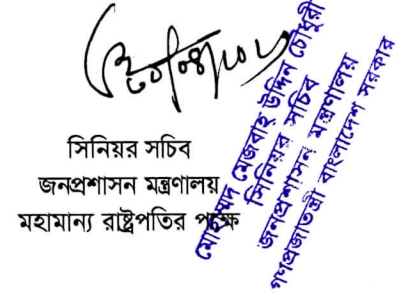 সিনিয়র সচিব
জনপ্রশাসন মন্ত্রণালয়
মহামান্য রাষ্ট্রপতির পক্ষে
মোহাম্মদ মেজবাহ্ উদ্দিন চৌধুরী
সিনিয়র সচিব
জনপ্রশাসন মন্ত্রণালয়
গণপ্রজাতন্ত্রী বাংলাদেশ সরকার